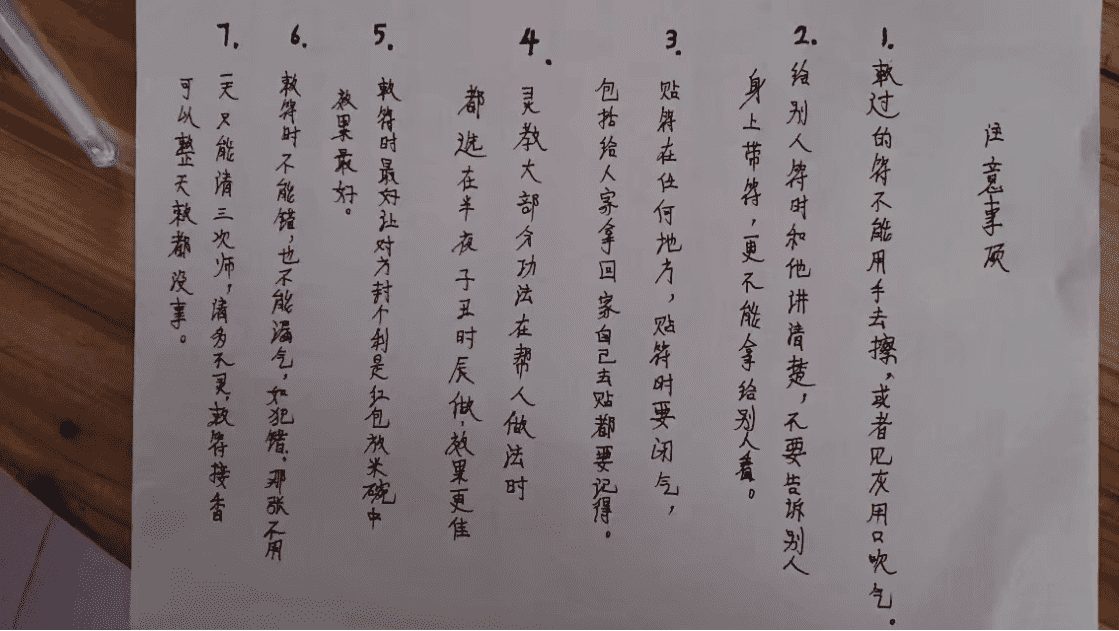 注意事项
1. 敕过的符不能用手去擦，或者见灰用口吹气.
2. 给别人符时和他讲清楚，不要告诉别人
身上带符，更不能拿给别人看。
3. 贴符在任何地方，贴符时要闭气，
包括给人家拿回家自己去贴都要记得。
4. 灵教大部分功法在帮人做法时
都选在半夜子丑时辰做，效果更佳
5. 敕符时最好让对方封个利是红包放米碗中
效果最好。
6. 敕符时不能错，也不能漏气，如犯错，那张不用
7. 一天只能请三次师，请多不灵，敕符接香
可以整天敕都没事。